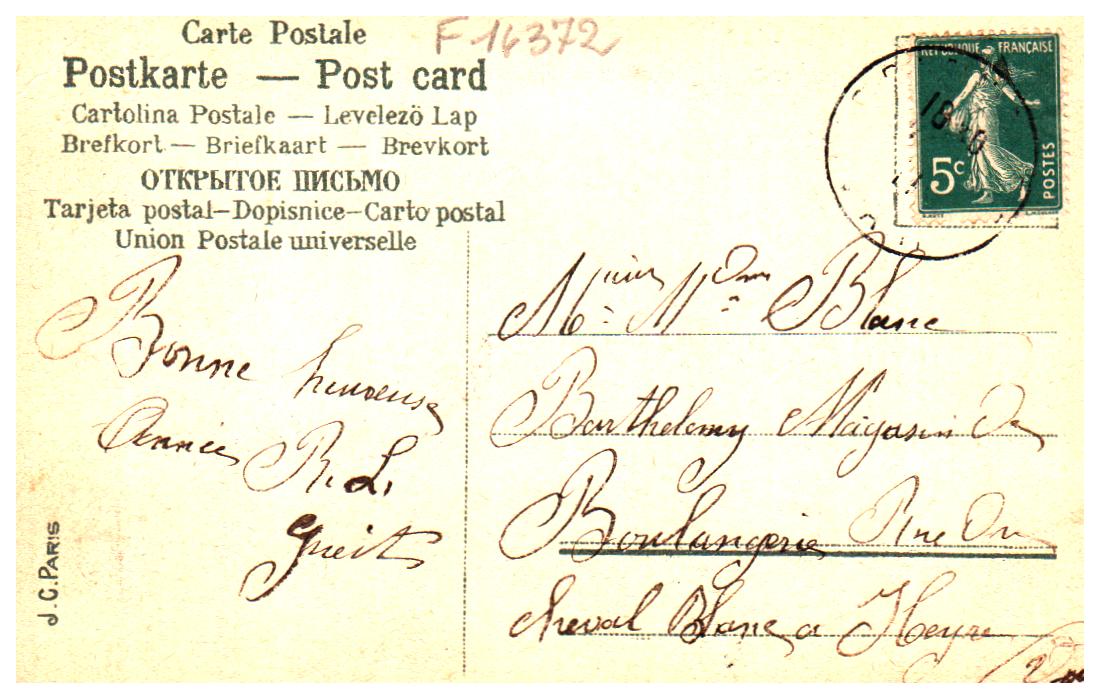 Carte Postale
F 16372
Postkarte — Post card
Cartolina Postale — Levelezö Lap
Brefkort — Briefkaart — Brevkort
ОТКРЫТОЕ ПИСЬМО
Tarjeta postal–Dopisnice–Carto postal
Union Postale universelle
REPUBLIQUE FRANÇAISE
5c
POSTES
Bonne heureuse
Année R. L.
J.C. PARIS
Blanc
Barthelemy Magasin De
Boulangerie Rue Du
Cheval Blanc a